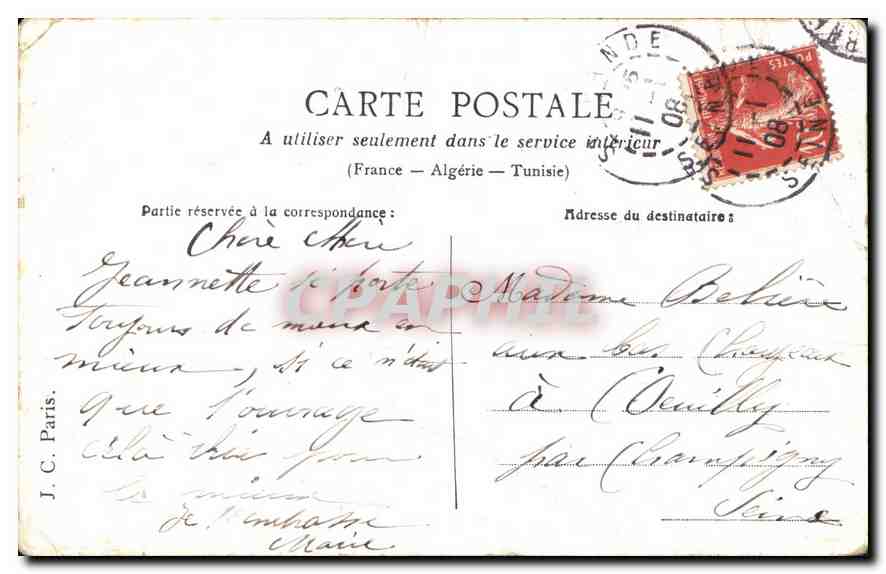 CARTE POSTALE
A utiliser seulement dans le service intérieur
(France — Algérie — Tunisie)
Partie réservée à la correspondance :
Adresse du destinataire :
Chère Mère
Jeannette se porte
toujours de mieux en
mieux, si ce n'était
que l'ouvrage
celà va pour
le mieux
Je t'embrasse
Marie
Madame Belière
aux bas
à Coeuilly
par Champigny
Seine
J. C. Paris.
CPAPHIL
POSTES
10
SEINE
11
08
SEINE
11
08